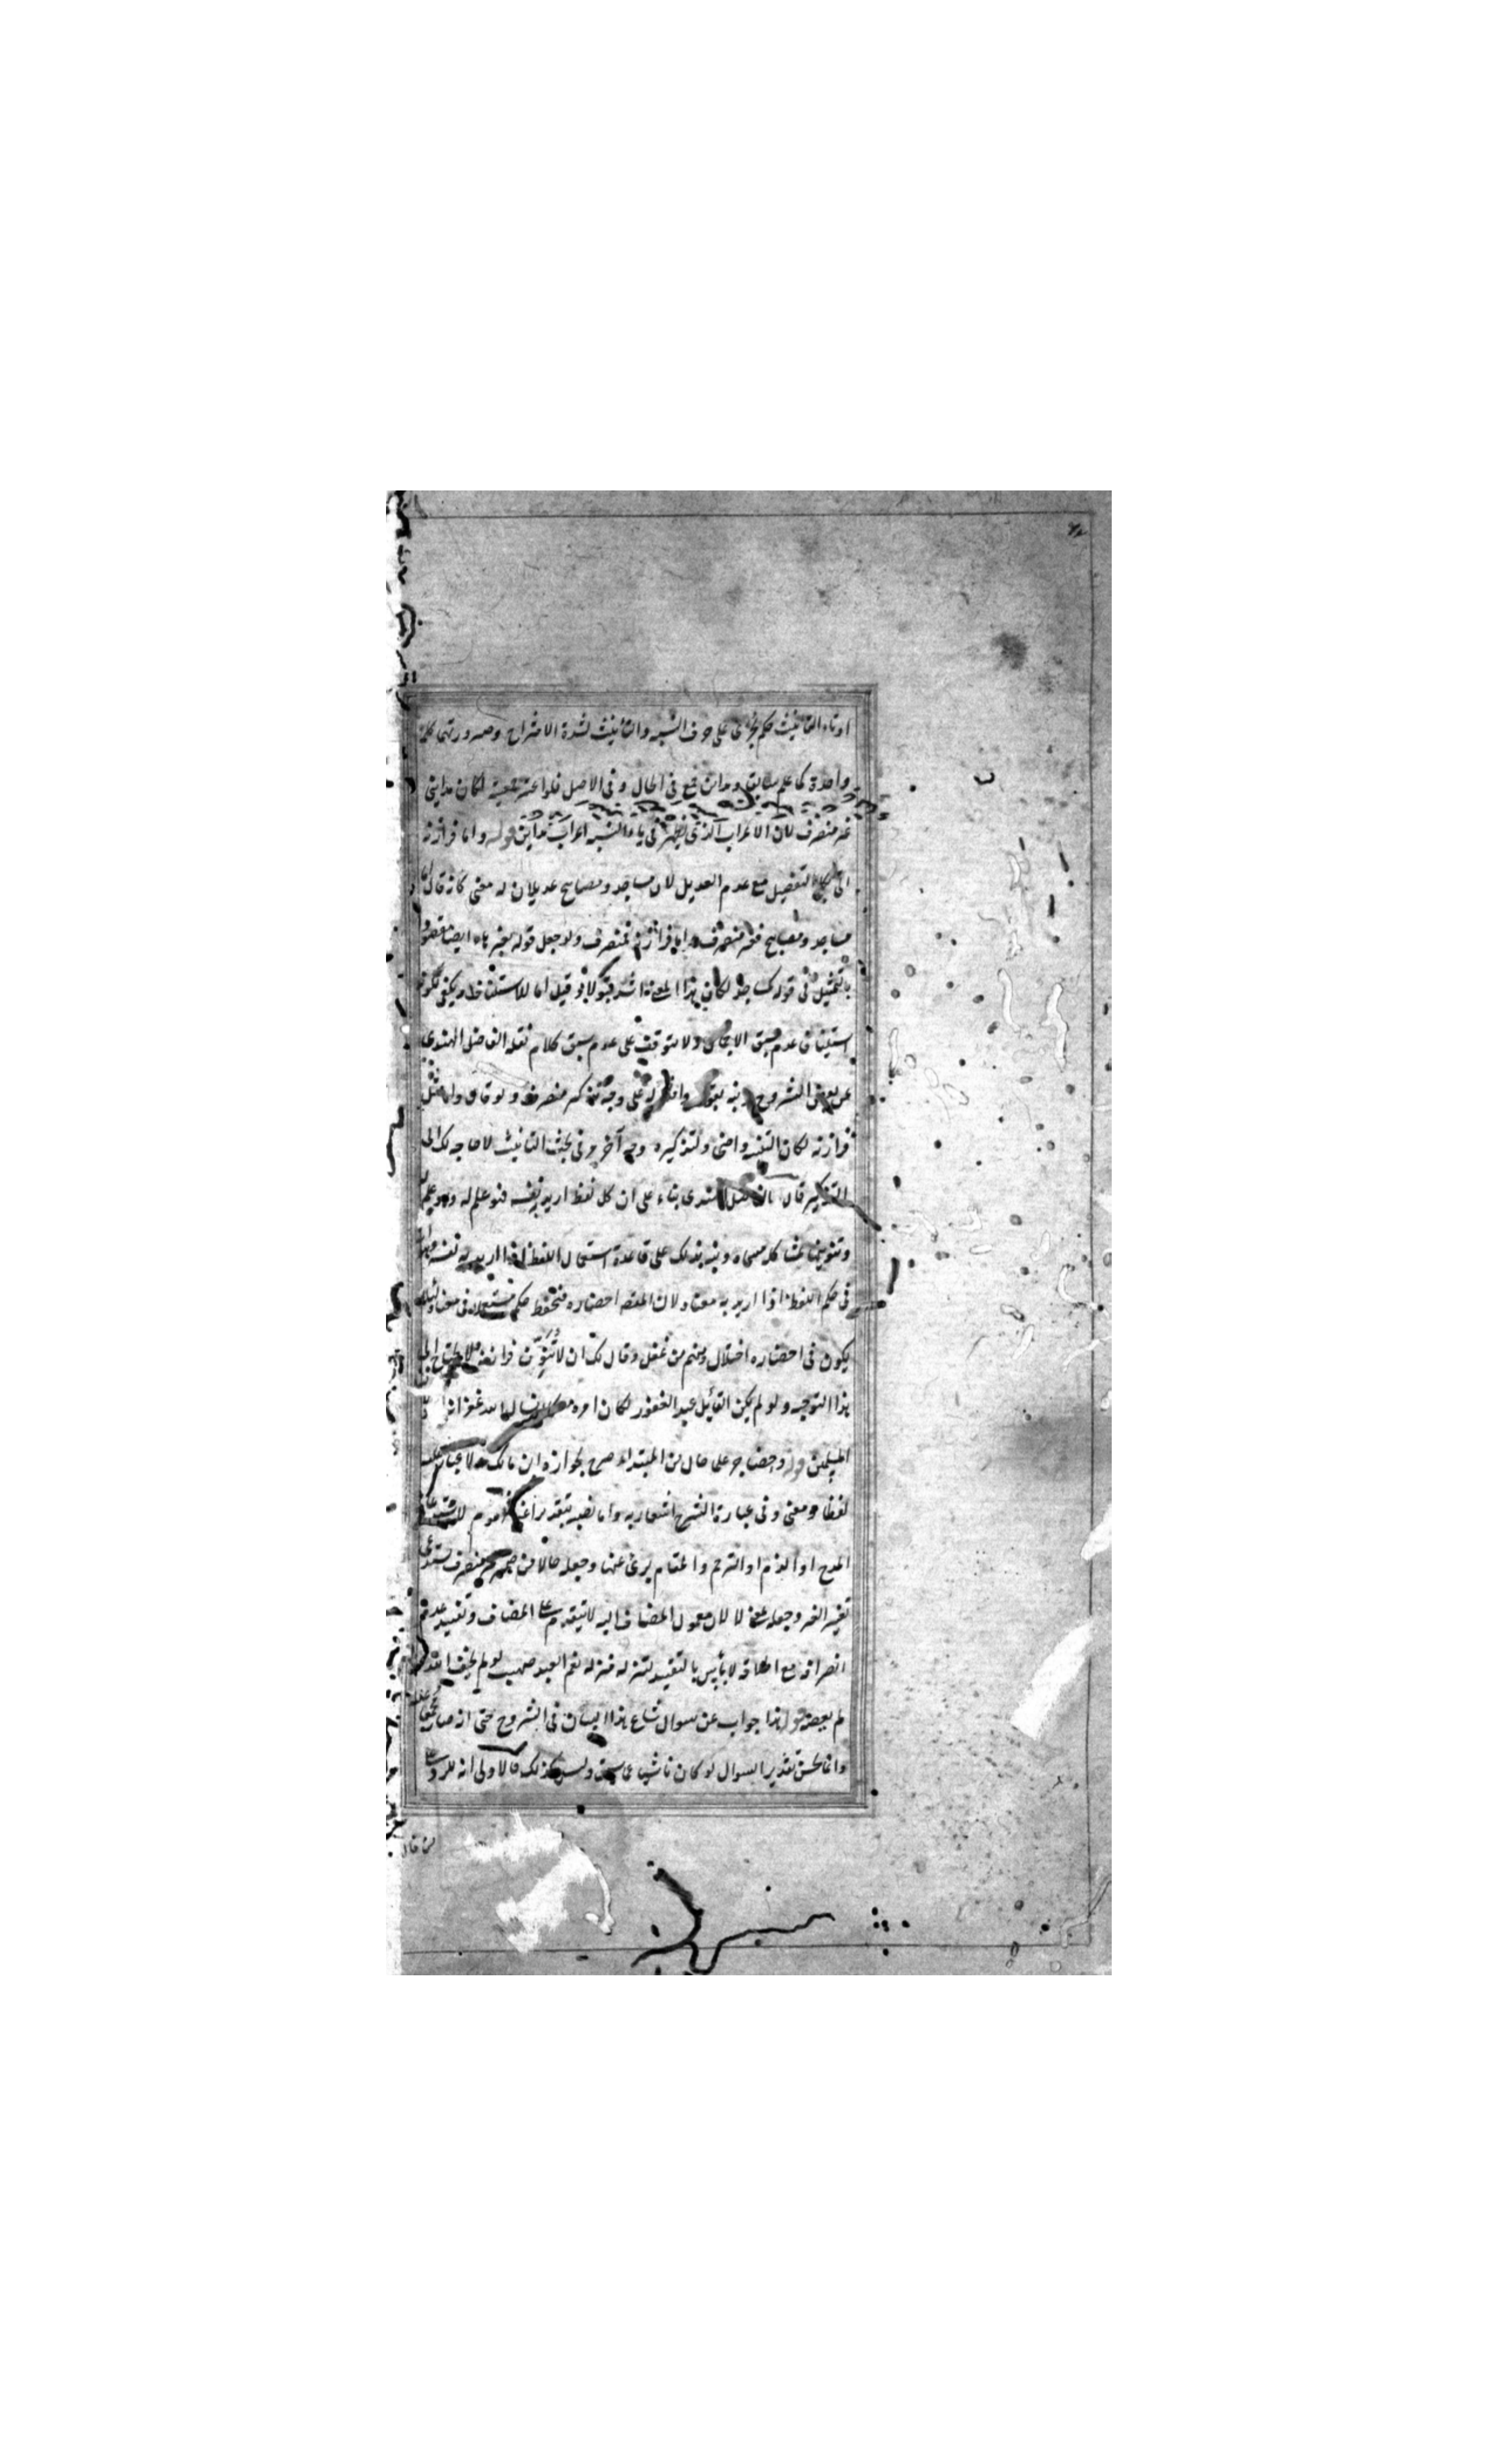 او تاء التأنيث حكم يجرى على حرف النسبة والتأنيث لشدة الامتزاج وصيرورتهما كلمة
واحدة كما علم سابق ومدائن جمع فى الحال وفى الاصل فلو اعتبر جمعيته لكان مداينى
غير منصرف لان الاعراب الذى يظهر فى ياء النسبة اعراب مداين قوله واما فرازنة
التفصيل مع عدم العديل لان مساجد ومصابيح عديلان له معنى كانه قال اما
مساجد ومصابيح فغير منصرف واما فرازنة فمنصرف ولو جعل قوله بغير هاء ايضا مقصودا
بالتمثيل فى قوله كمساجد لكان هذا المعنى اشد قبولا وقيل اما للاستيناف ويكفى لكونه
استينافا عدم سبق الاجمال ولا يتوقف على عدم سبق كلام نقله الفاضل الهندى
عن بعض الشروح على وجه تذكير منصرف ولو قال واما مثل
فرازنة لكان التفسير واضح ولتذكيره وجه آخر وفى بحث التأنيث لا حاجة لك الى
التذكير قال الفاضل الهندى بناء على ان كل لفظ اريد به نفسه فهو علم له
وتنوينها لمشاكلة مسماه ونبه بذلك على قاعدة استعمال اللفظ اذا اريد به نفسه
فى حكم اللفظ اذا اريد به معناه لان المقصد احضاره فتحفظ حكم مستعملاه فى معناه لئلا
يكون فى احضاره اختلال ومنهم من غفل وقال لك ان لا تنون فرازنة فلا يحتاج الى
هذا التوجيه ولو لم يكن القائل عبد الغفور لكان امره
قوله وحضاجر علما حال من المبتداء صرح بجوازه ابن مالك
لفظا ومعنى وفى عبارة الشرح اشعار به واما نصبه بتقدير اعنى
المدح او الذم او الترحم والمقام برئ عنها وجعله حالا من ضمير غير منصرف يستدعى
تغيير الغير وجعله بمعنى لا لان معمول المضاف اليه لا يتقدم على المضاف وتقييد عدم
انصرافه مع اطلاقه لا بأس بالتقييد لتنزله منزلة نعم العبد صهيب لو لم يخف الله
لم يعصه قوله هذا جواب عن سوال شاع هذا البيان فى الشروح حتى انه صار
وانما يحسن تقدير السوال لو كان ناشيا مما سبق وليس كذلك فالاولى انه للرد على
من قال